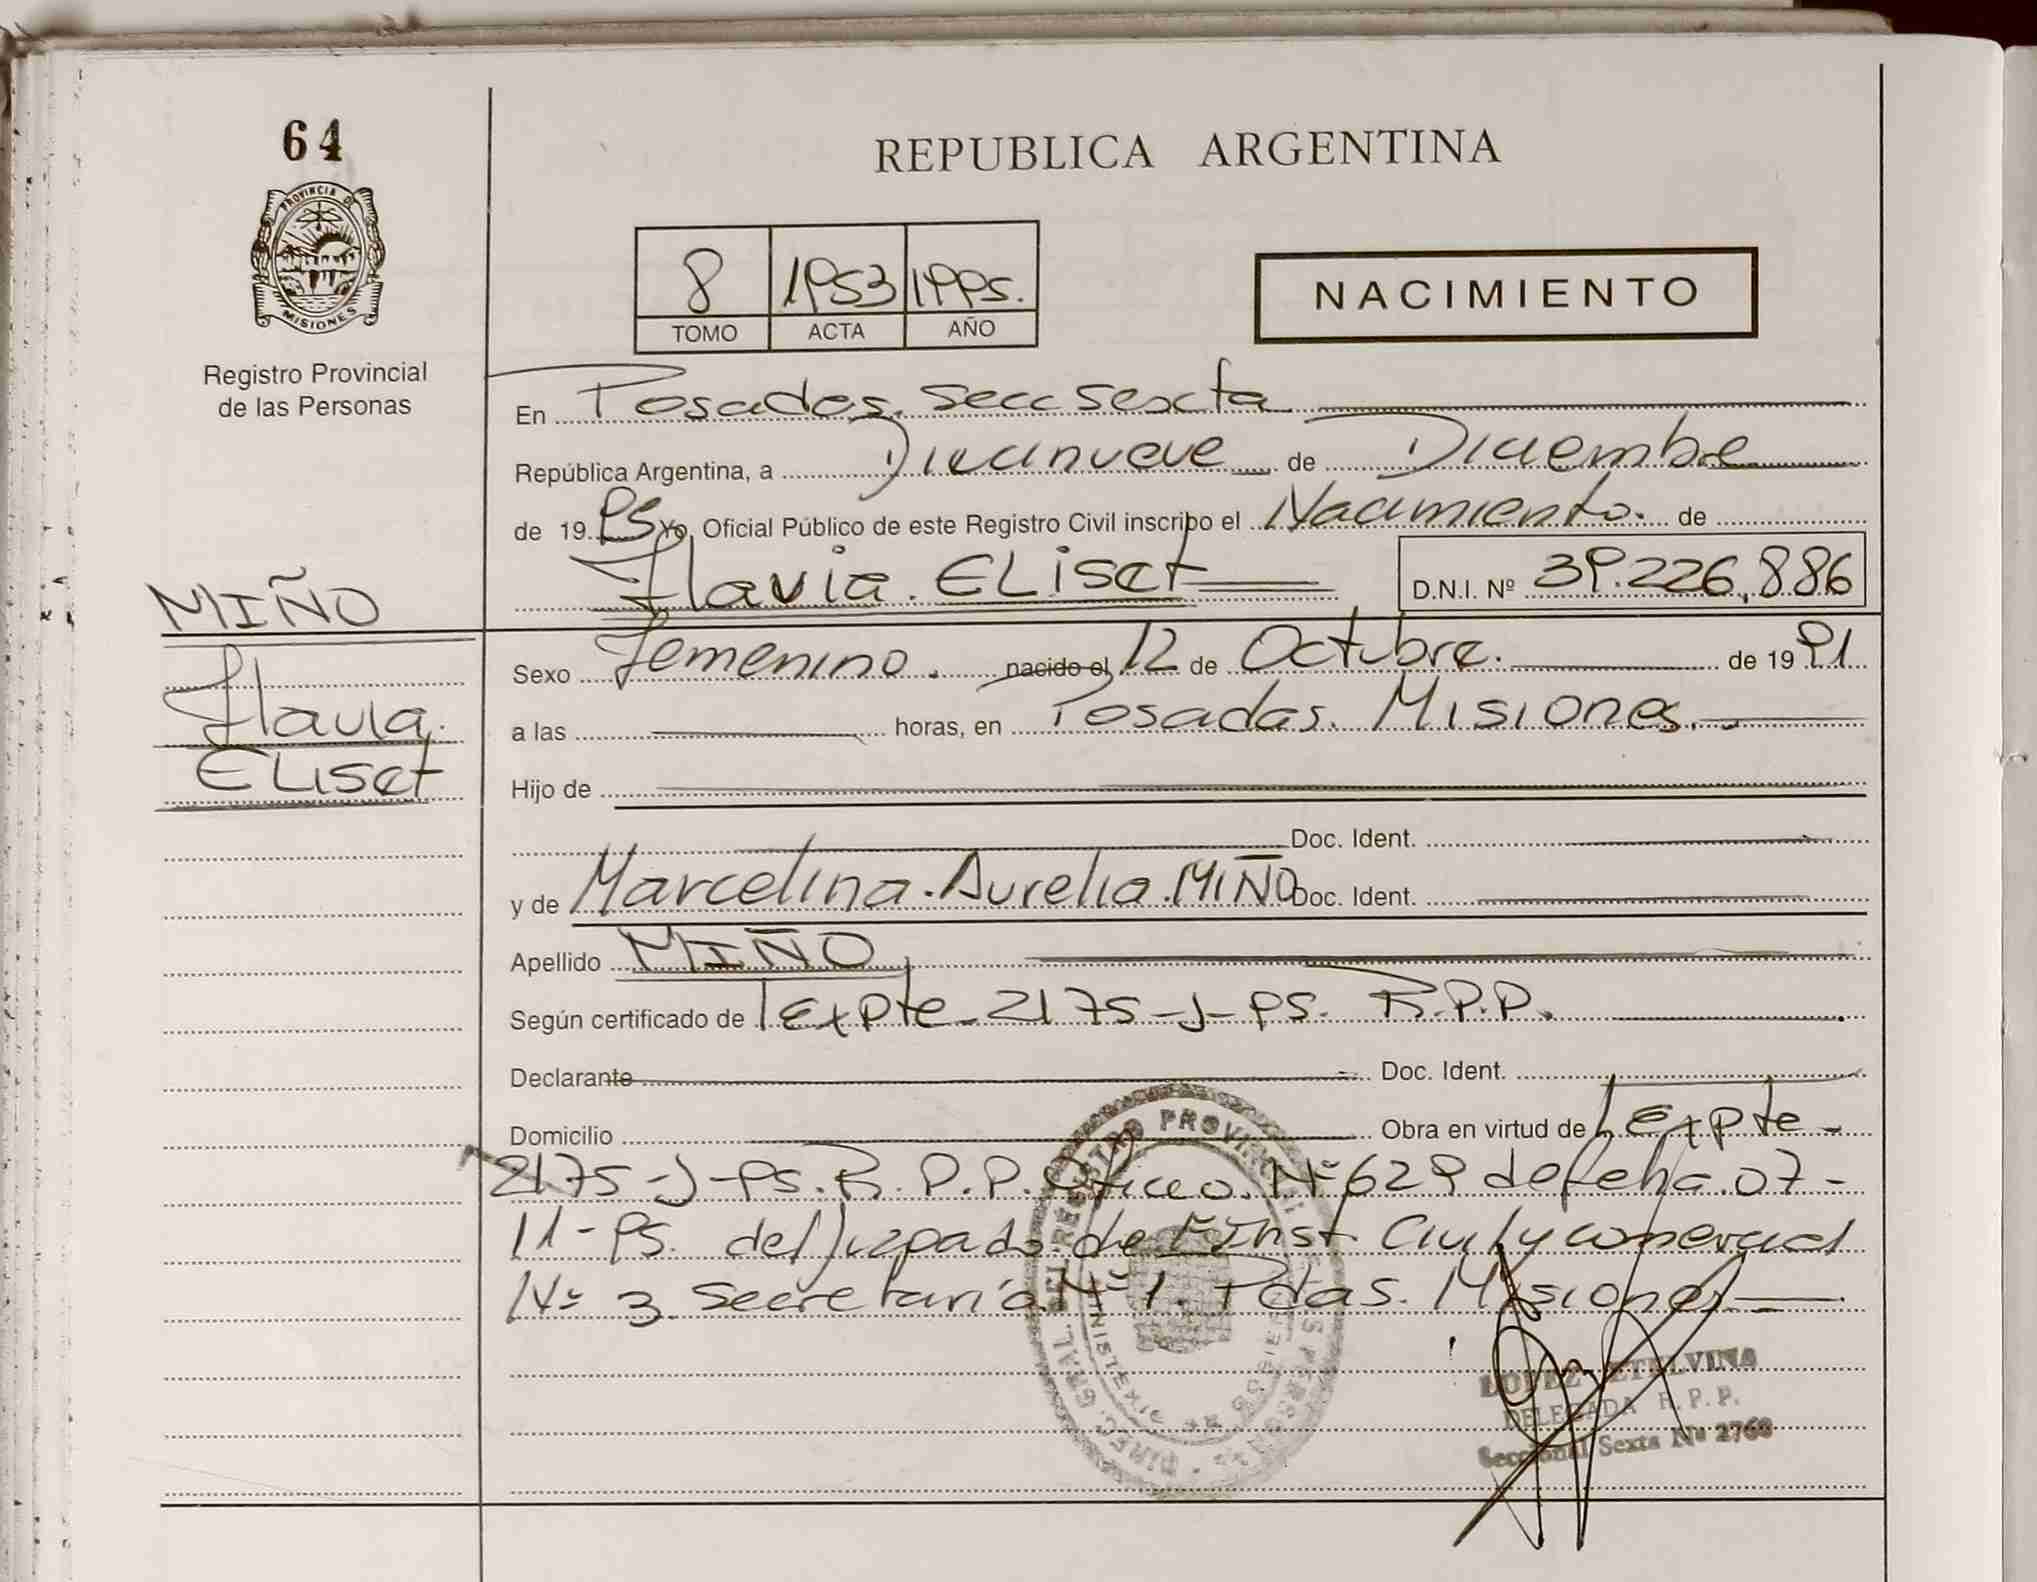 64
PROVINCIA DE
MISIONES
Registro Provincial
de las Personas
REPUBLICA ARGENTINA
8 1953 1995.
TOMO ACTA AÑO
NACIMIENTO
En Posadas. Secc Sexta
República Argentina, a Diecinueve de Diciembre
de 19 95 Yo, Oficial Público de este Registro Civil inscribo el Nacimiento. de
Flavia. ELiset D.N.I. Nº 39.226.886
MIÑO
Flavia.
ELiset
Sexo Femenino. nacido el 12 de Octubre. de 19 91
a las horas, en Posadas. Misiones.
Hijo de
Doc. Ident.
y de Marcelina. Aurelia. MIÑO Doc. Ident.
Apellido MIÑO
Según certificado de Expte 2175-J-95. R.P.P.
Declarante Doc. Ident.
Domicilio Obra en virtud de Expte-
2175-J-95. R.P.P. Oficio. Nº 629 de fecha. 07-
11-95. del Juzgado de 1º Inst. Civil y Comercial
Nº 3 Secretaría Nº 1. Pdas. Misiones
DIREC. GRAL. DEL REGISTRO PROVINCIAL DE LAS PERSONAS
LOPEZ ETELVINA
DELEGADA R.P.P.
Seccional Sexta Nº 2760